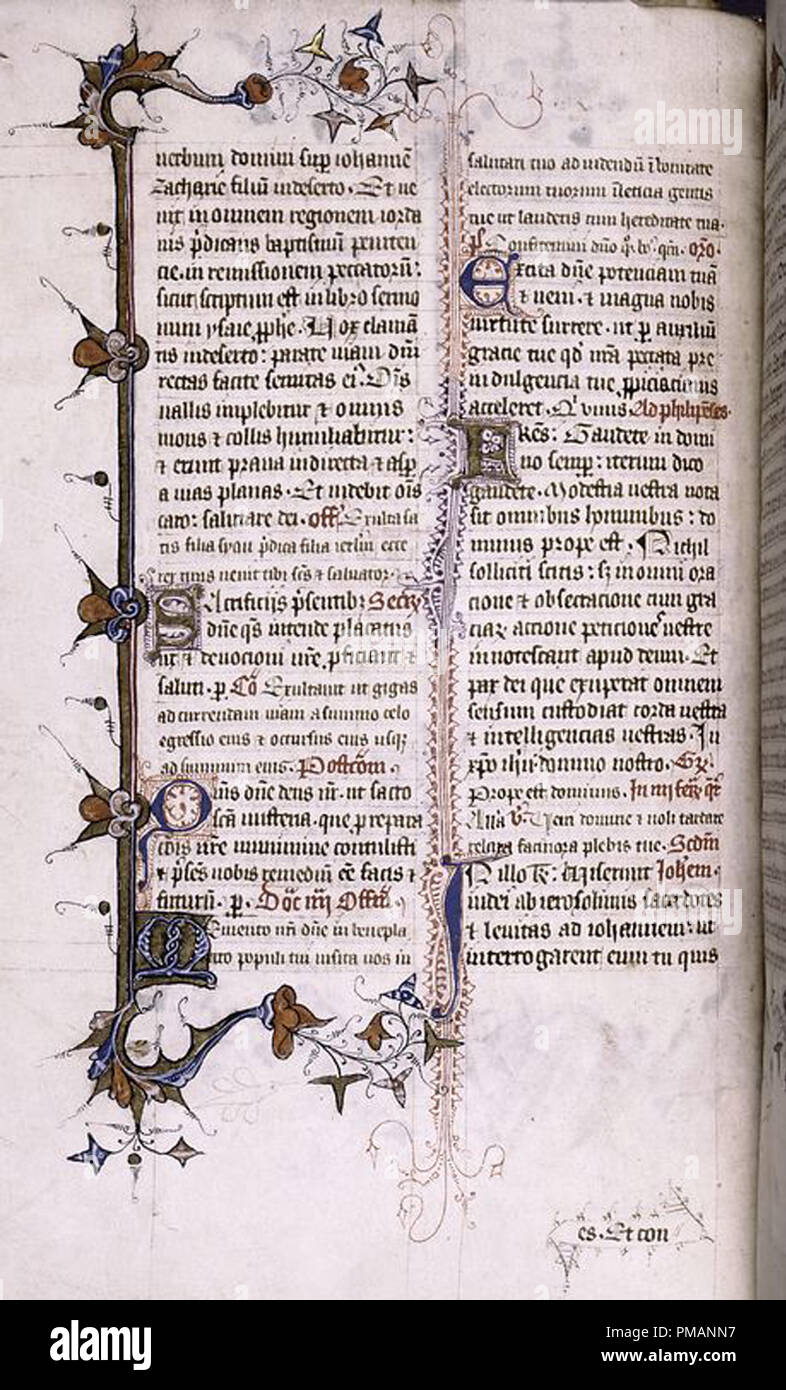 verbum domini sup̱ iohannē
zacharie filiū indeserto. Et ue
nit in omnem regionem iorda
nis p̄dicans baptismū peniten
cie. in remissionem peccatorū:
sicut scriptum est in libro sermo
num ysaie ꝓphē. Uox claman̄
tis indeserto: parate uiam dn̄i
rectas facite semitas ei᷒. Om̄is
uallis implebitur ⁊ omnis
mons ⁊ collis humiliabitur:
⁊ erunt praua indirecta ⁊ asp̱
a uias planas. Et uidebit oīs
caro: salutare dei. off̄. Exulta sa
tis filia syon p̄dica filia ierl̄m ecce
rex tuus uenit tibi sc̄s ⁊ saluator.
Sacrificijs p̄sentib᷒ Secꝛ̄
dn̄e qs̄ intende placatus
ut ⁊ deuocioni nr̄e ꝓficiant ⁊
saluti. p̱ Cō Exultauit ut gigas
ad currendam uiam a summo celo
egressio eius ⁊ occursus eius usqꝫ
ad summum eius. Postcōm.
dn̄e deus nr̄. ut sacro
sc̄a misteria. que p̱ repara
cōis nr̄e munimine contulisti
⁊ p̄sēs nobis remediū eē facis ⁊
futurū. p̱. Dōc iiij Offm̄
Memento nr̄i dn̄e in benepla
cito populi tui uisita nos in
salutari tuo ad uidendū ī bonitate
electorum tuorum ī leticia gentis
tue ut lauderis cum hereditate tua.
p̄s Confitemini dn̄o qm̄. orō.
Excita dn̄e potenciam tuā
⁊ ueni. ⁊ magna nobis
uirtute surrere. ut p̱ auxiliū
gracie tue qd̄ nr̄a peccata pre
indulgencia tue ꝓpiciacionis
acceleret. Q̄ uiuis Ad philipenses.
Fr̄es: Gaudete in domi
no semp̱: iterum dico
gaudete. Modestia uestra nota
sit omnibus hominibus: do
minus prope est. Nichil
solliciti sitis: sꝫ in omni ora
cione ⁊ obsecracione cum gra
ciaꝝ accione peticiones uestre
innotescant apud deum. Et
pax dei que exuperat omnem
sensum custodiat corda uestra
⁊ intelligencias uestras. In
xp̄o ih̄u domino nostro. Gꝛ̄.
Prope est dominus.
Alla v̄. Ueni domine ⁊ noli tardare
relaxa facinora plebis tue. Scdm̄
In illo t̄: Miserunt Johem.
iudei ab ierosolimis sacerdotes
⁊ leuitas ad iohannem: ut
interrogarent eum tu quis
es. Et con
alamy
alamy
alamy
Image ID: PMANN7
www.alamy.com